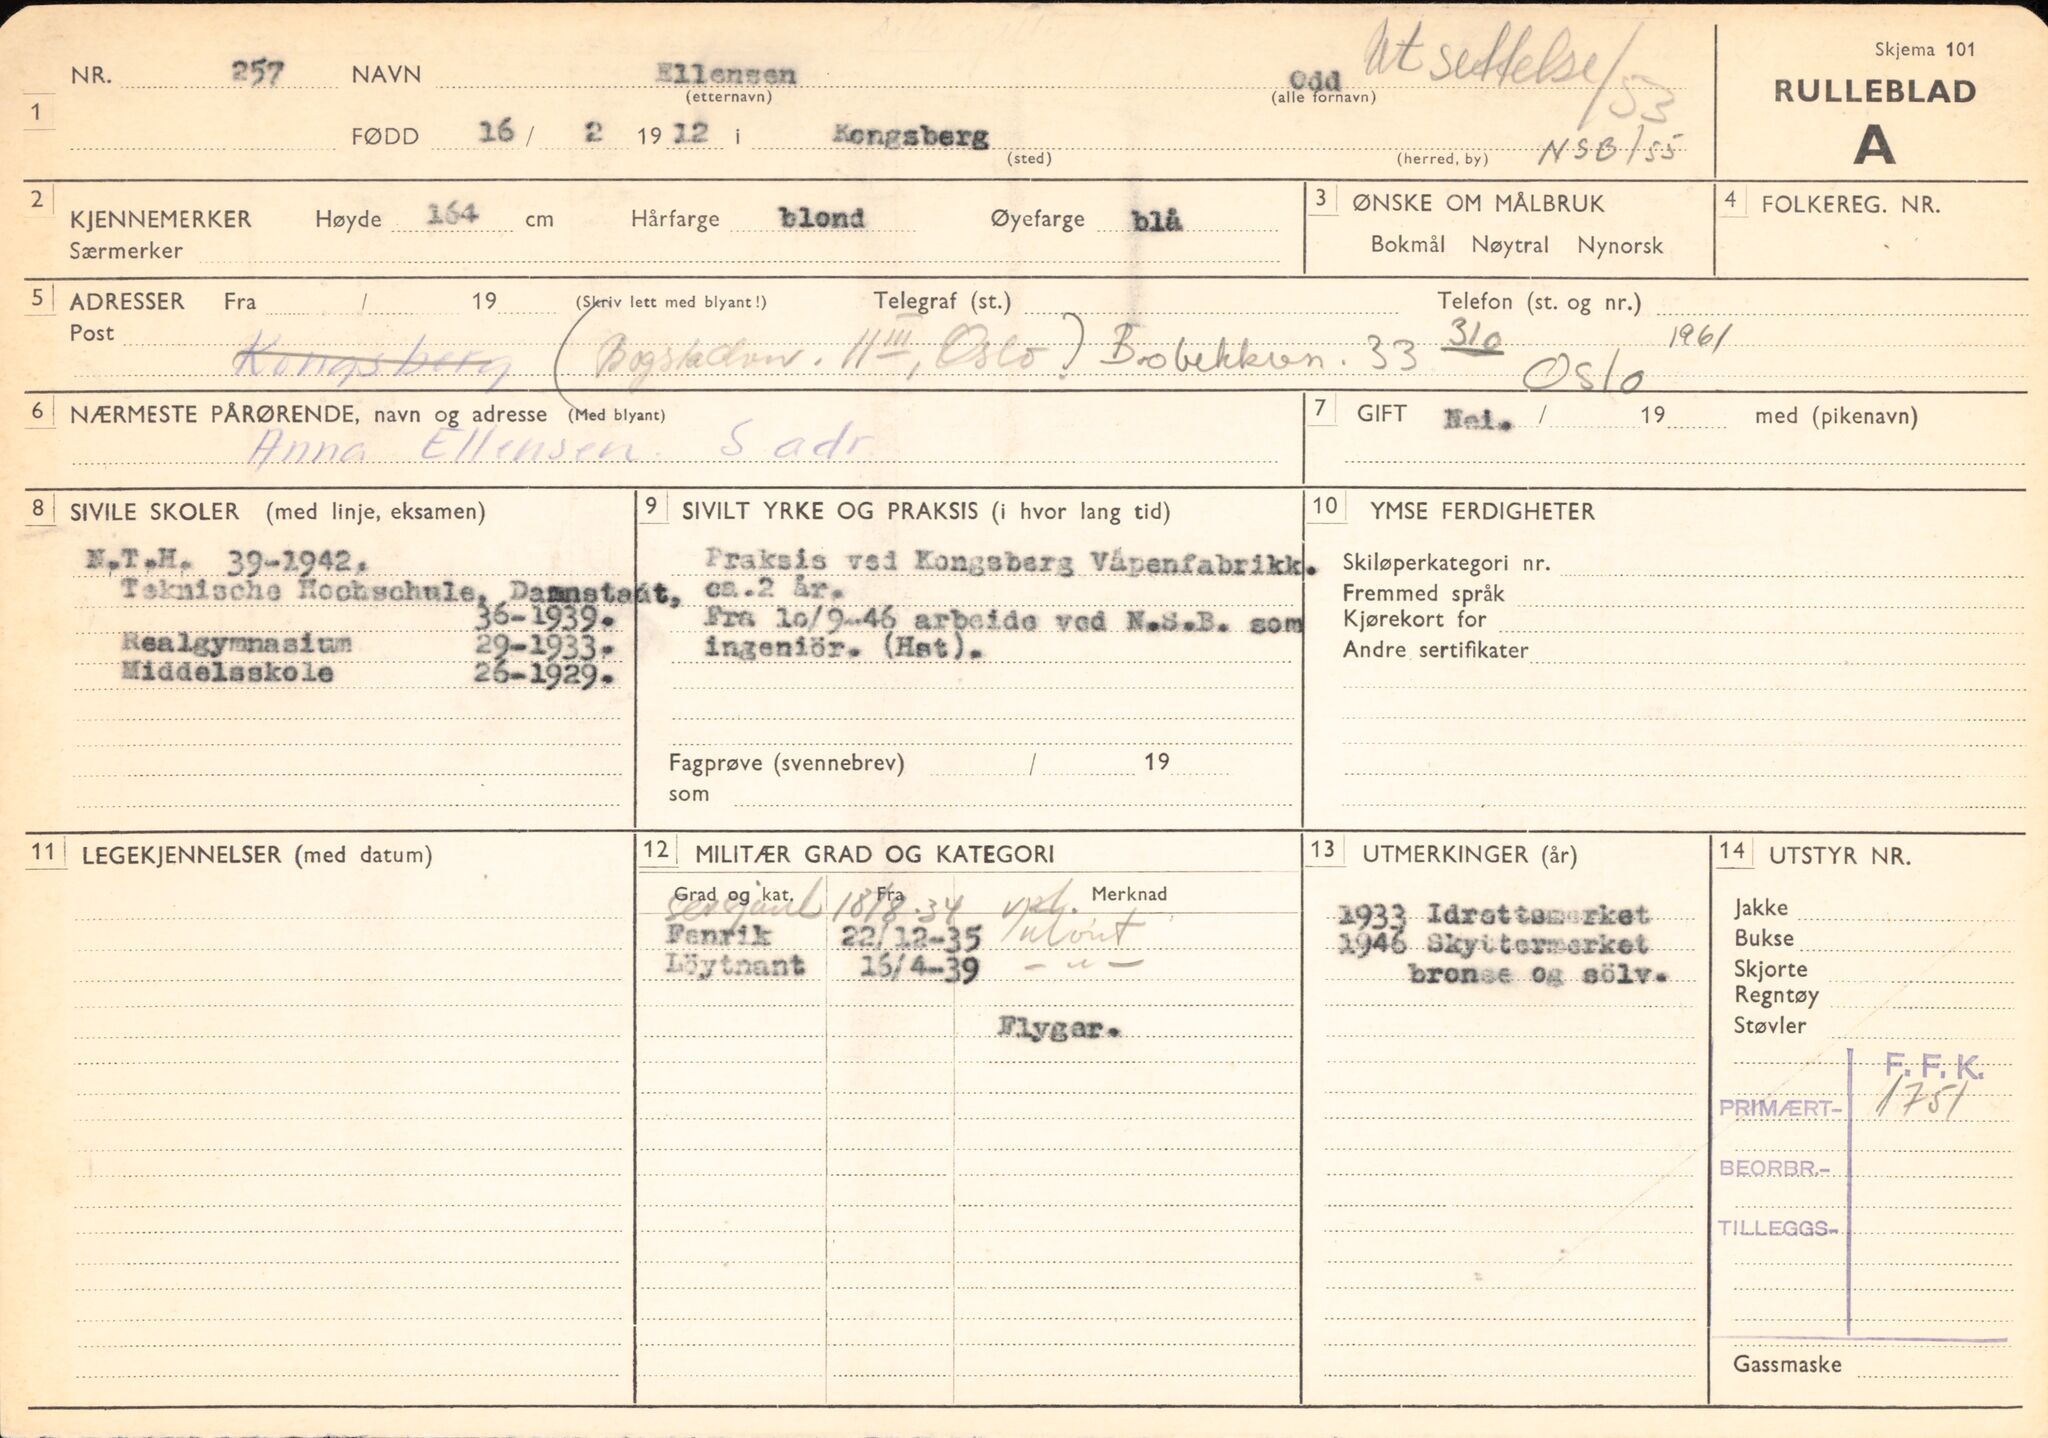 Utsettelse/53
Skjema 101
NR. 257 NAVN Ellensen Odd
(etternavn) (alle fornavn)
RULLEBLAD
A
1
FØDD 16 / 2 1912 i Kongsberg
(sted) (herred, by) NSB/55
2 KJENNEMERKER Høyde 164 cm Hårfarge blond Øyefarge blå
Særmerker
3 ØNSKE OM MÅLBRUK
Bokmål Nøytral Nynorsk
4 FOLKEREG. NR.
5 ADRESSER Fra / 19 (Skriv lett med blyant!) Telegraf (st.) Telefon (st. og nr.)
Post Kongsberg (Bogstadvn. 11 III, Oslo) Brobekkvn. 33 310 1961
Oslo
6 NÆRMESTE PÅRØRENDE, navn og adresse (Med blyant)
Anna Ellensen. S adr.
7 GIFT Nei. / 19 med (pikenavn)
8 SIVILE SKOLER (med linje, eksamen)
N.T.H. 39-1942.
Teknische Hochschule, Damnstadt,
36-1939.
Realgymnasium 29-1933.
Middelsskole 26-1929.
9 SIVILT YRKE OG PRAKSIS (i hvor lang tid)
Praksis ved Kongsberg Våpenfabrikk.
ca.2 år.
Fra 10/9-46 arbeide ved N.S.B. som
ingeniör. (Hst).
Fagprøve (svennebrev) / 19
som
10 YMSE FERDIGHETER
Skiløperkategori nr.
Fremmed språk
Kjørekort for
Andre sertifikater
11 LEGEKJENNELSER (med datum)
12 MILITÆR GRAD OG KATEGORI
Grad og kat. Fra Merknad
Sersjant 18/8.34 vpl.
Fenrik 22/12-35
Löytnant 16/4-39 - " -
Flyger.
13 UTMERKINGER (år)
1933 Idrettsmerket
1946 Skyttermerket
bronse og sölv.
14 UTSTYR NR.
Jakke
Bukse
Skjorte
Regntøy
Støvler
F. F. K.
PRIMÆRT- 1751
BEORBR.-
TILLEGGS-
Gassmaske